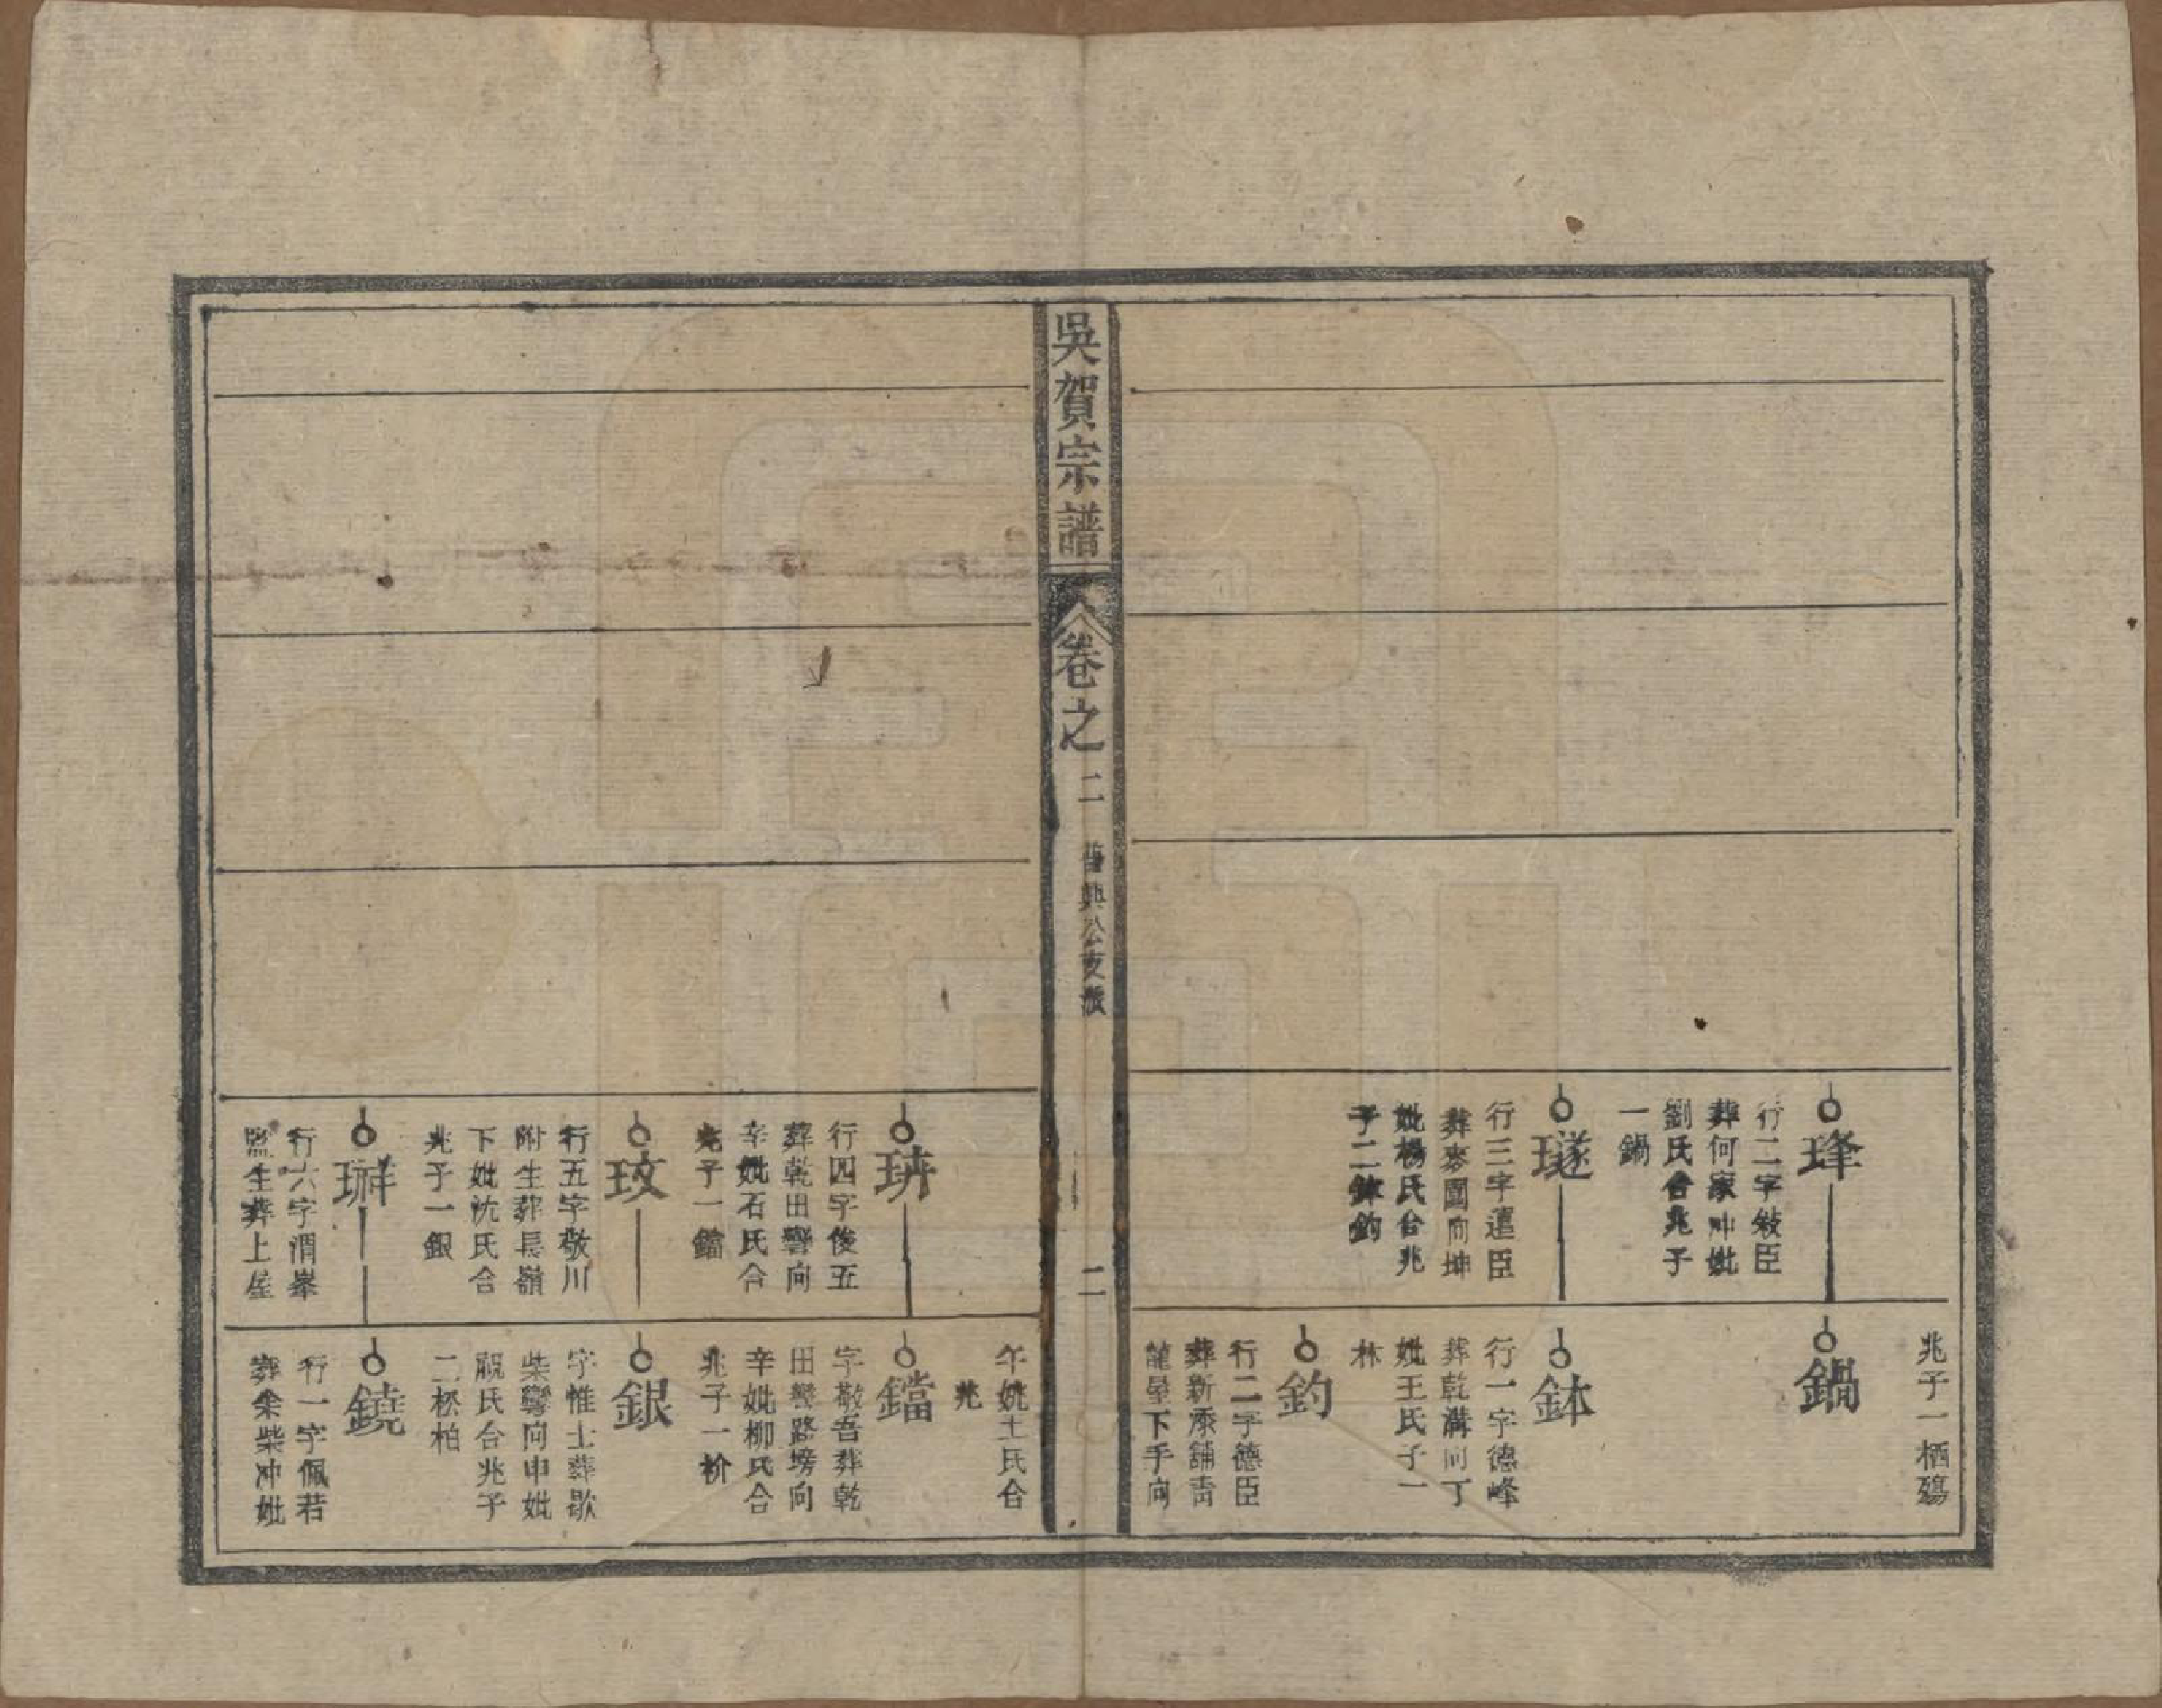 琒
行二字敍臣
葬何家冲妣
劉氏合兆子
一鍋
璲
行三字運臣
葬麥園向坤
妣楊氏合兆
子二鉢鈞
兆子一栖殤
鍋
鉢
行一字德峰
葬乾溝向丁
妣王氏子一
林
鈞
行二字德臣
葬新添鋪靑
龍屋下手向
吳賀宗譜
卷之二
普興公支派
二
琾
行四字俊五
葬乾田彎向
辛妣石氏合
兆子一鐺
玫
行五字敬川
附生葬長嶺
下妣沈氏合
兆子一銀
行六字渭峯
監生葬上屋
午姚王氏合
兆
鐺
字敬吾葬乾
田彎路塝向
辛妣柳氏合
兆子一枌
銀
字惟士葬歇
柴彎向申妣
氏合兆子
二松柏
鐃
行一字佩若
葬余柴冲妣